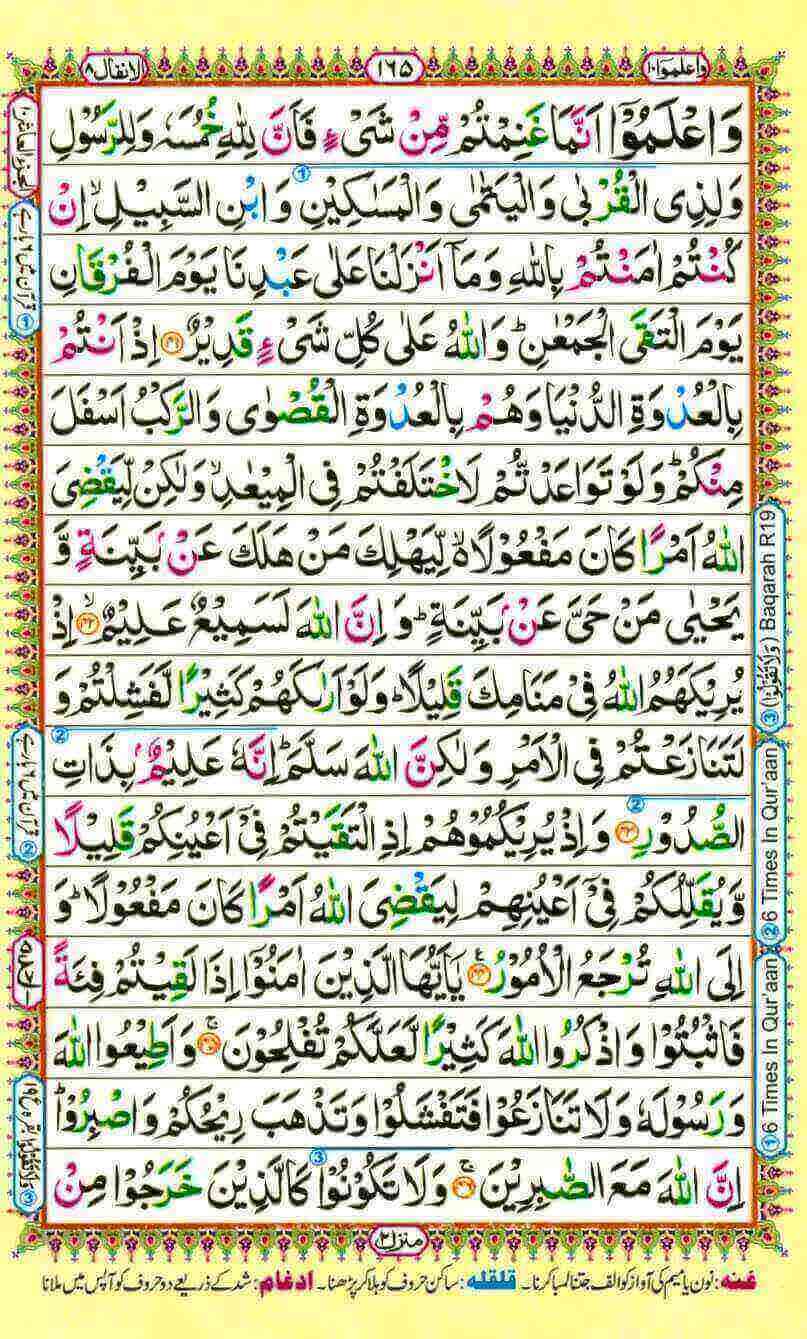 واعلموا ١٠
١٦٥
الانفال ٨
وَاعْلَمُوْۤا اَنَّمَا غَنِمْتُمْ مِّنْ شَیْءٍ فَاَنَّ لِلّٰهِ خُمُسَهٗ وَلِلرَّسُوْلِ
وَلِذِی الْقُرْبٰی وَالْیَتٰمٰی وَالْمَسٰكِیْنِ وَابْنِ السَّبِیْلِ ۙ اِنْ
كُنْتُمْ اٰمَنْتُمْ بِاللّٰهِ وَمَاۤ اَنْزَلْنَا عَلٰی عَبْدِنَا یَوْمَ الْفُرْقَانِ
یَوْمَ الْتَقَی الْجَمْعٰنِ ؕ وَاللّٰهُ عَلٰی كُلِّ شَیْءٍ قَدِیْرٌ ﴿۴۱﴾ اِذْ اَنْتُمْ
بِالْعُدْوَةِ الدُّنْیَا وَهُمْ بِالْعُدْوَةِ الْقُصْوٰی وَالرَّكْبُ اَسْفَلَ
مِنْكُمْ ؕ وَلَوْ تَوَاعَدْتُّمْ لَاخْتَلَفْتُمْ فِی الْمِیْعٰدِ ۙ وَلٰكِنْ لِّیَقْضِیَ
اللّٰهُ اَمْرًا كَانَ مَفْعُوْلًا ۙ۬ لِّیَهْلِكَ مَنْ هَلَكَ عَنْۢ بَیِّنَةٍ وَّ
یَحْیٰی مَنْ حَیَّ عَنْۢ بَیِّنَةٍ ؕ وَاِنَّ اللّٰهَ لَسَمِیْعٌ عَلِیْمٌ ﴿ۙ۴۲﴾ اِذْ
یُرِیْكَهُمُ اللّٰهُ فِیْ مَنَامِكَ قَلِیْلًا ؕ وَلَوْ اَرٰىكَهُمْ كَثِیْرًا لَّفَشِلْتُمْ وَ
لَتَنَازَعْتُمْ فِی الْاَمْرِ وَلٰكِنَّ اللّٰهَ سَلَّمَ ؕ اِنَّهٗ عَلِیْمٌۢ بِذَاتِ
الصُّدُوْرِ ﴿۴۳﴾ وَاِذْ یُرِیْكُمُوْهُمْ اِذِ الْتَقَیْتُمْ فِیْۤ اَعْیُنِكُمْ قَلِیْلًا
وَّیُقَلِّلُكُمْ فِیْۤ اَعْیُنِهِمْ لِیَقْضِیَ اللّٰهُ اَمْرًا كَانَ مَفْعُوْلًا ؕ وَ
اِلَی اللّٰهِ تُرْجَعُ الْاُمُوْرُ ﴿۴۴﴾ یٰۤاَیُّهَا الَّذِیْنَ اٰمَنُوْۤا اِذَا لَقِیْتُمْ فِئَةً
فَاثْبُتُوْا وَاذْكُرُوا اللّٰهَ كَثِیْرًا لَّعَلَّكُمْ تُفْلِحُوْنَ ﴿ۚ۴۵﴾ وَاَطِیْعُوا اللّٰهَ
وَرَسُوْلَهٗ وَلَا تَنَازَعُوْا فَتَفْشَلُوْا وَتَذْهَبَ رِیْحُكُمْ وَاصْبِرُوْا ؕ
اِنَّ اللّٰهَ مَعَ الصّٰبِرِیْنَ ﴿ۚ۴۶﴾ وَلَا تَكُوْنُوْا كَالَّذِیْنَ خَرَجُوْا مِنْ
③ (وَلَا تَقُوْلُوْا) Baqarah R19
② 6 Times In Qur'aan
① 6 Times In Qur'aan
قرآن میں ٦ بار ہے ①
قرآن میں ٦ بار ہے ②
منزل ٢
غنه: نون یا میم کی آواز کو الف جتنا لمبا کرنا۔ قلقله: ساکن حروف کو ہلا کر پڑھنا۔ ادغام: شد کے ذریعے دو حروف کو آپس میں ملانا